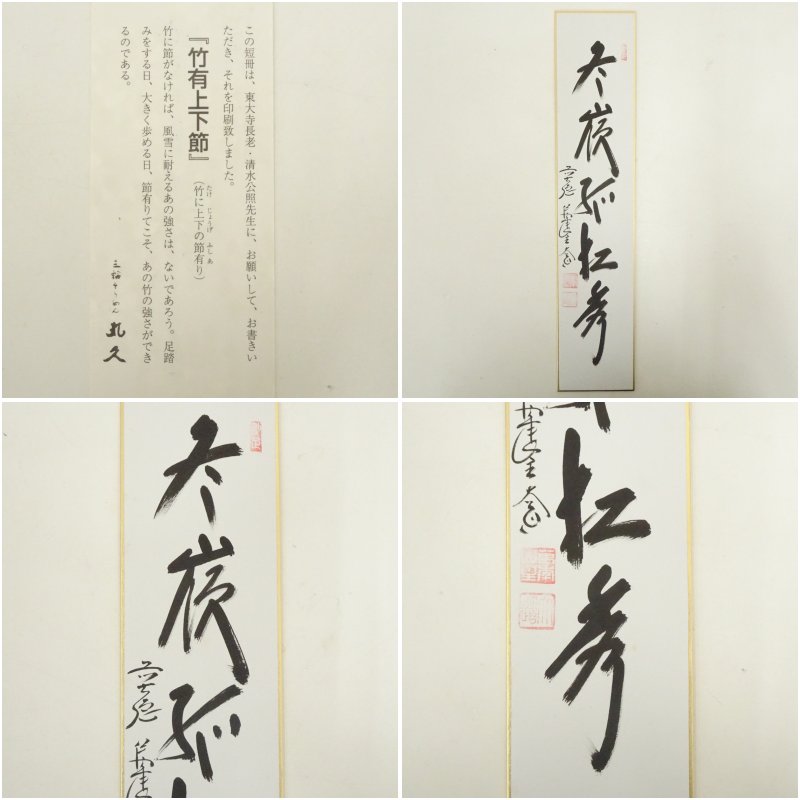 この短冊は、東大寺長老・清水公照先生に、お願いして、お書きい
ただき、それを印刷致しました。
『竹有上下節』
（竹に上下の節有り）
たけ じょうげ ふしあ
竹に節がなければ、風雪に耐えるあの強さは、ないであろう。足踏
みをする日、大きく歩める日、節有りてこそ、あの竹の強さができ
るのである。
三輪そうめん 丸久
冬嶺孤松秀
冬嶺孤
松秀